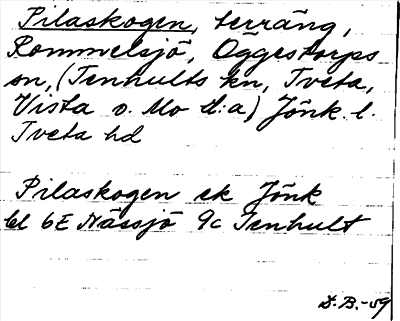 Pilaskogen, terräng,
Rommelsjö, Öggestorps
sn, (Tenhults kn, Tveta,
Vista o. Mo d:a) Jönk. l.
Tveta hd
Pilaskogen ek Jönk
bl 6E Nässjö 9c Tenhult
D.B.-59